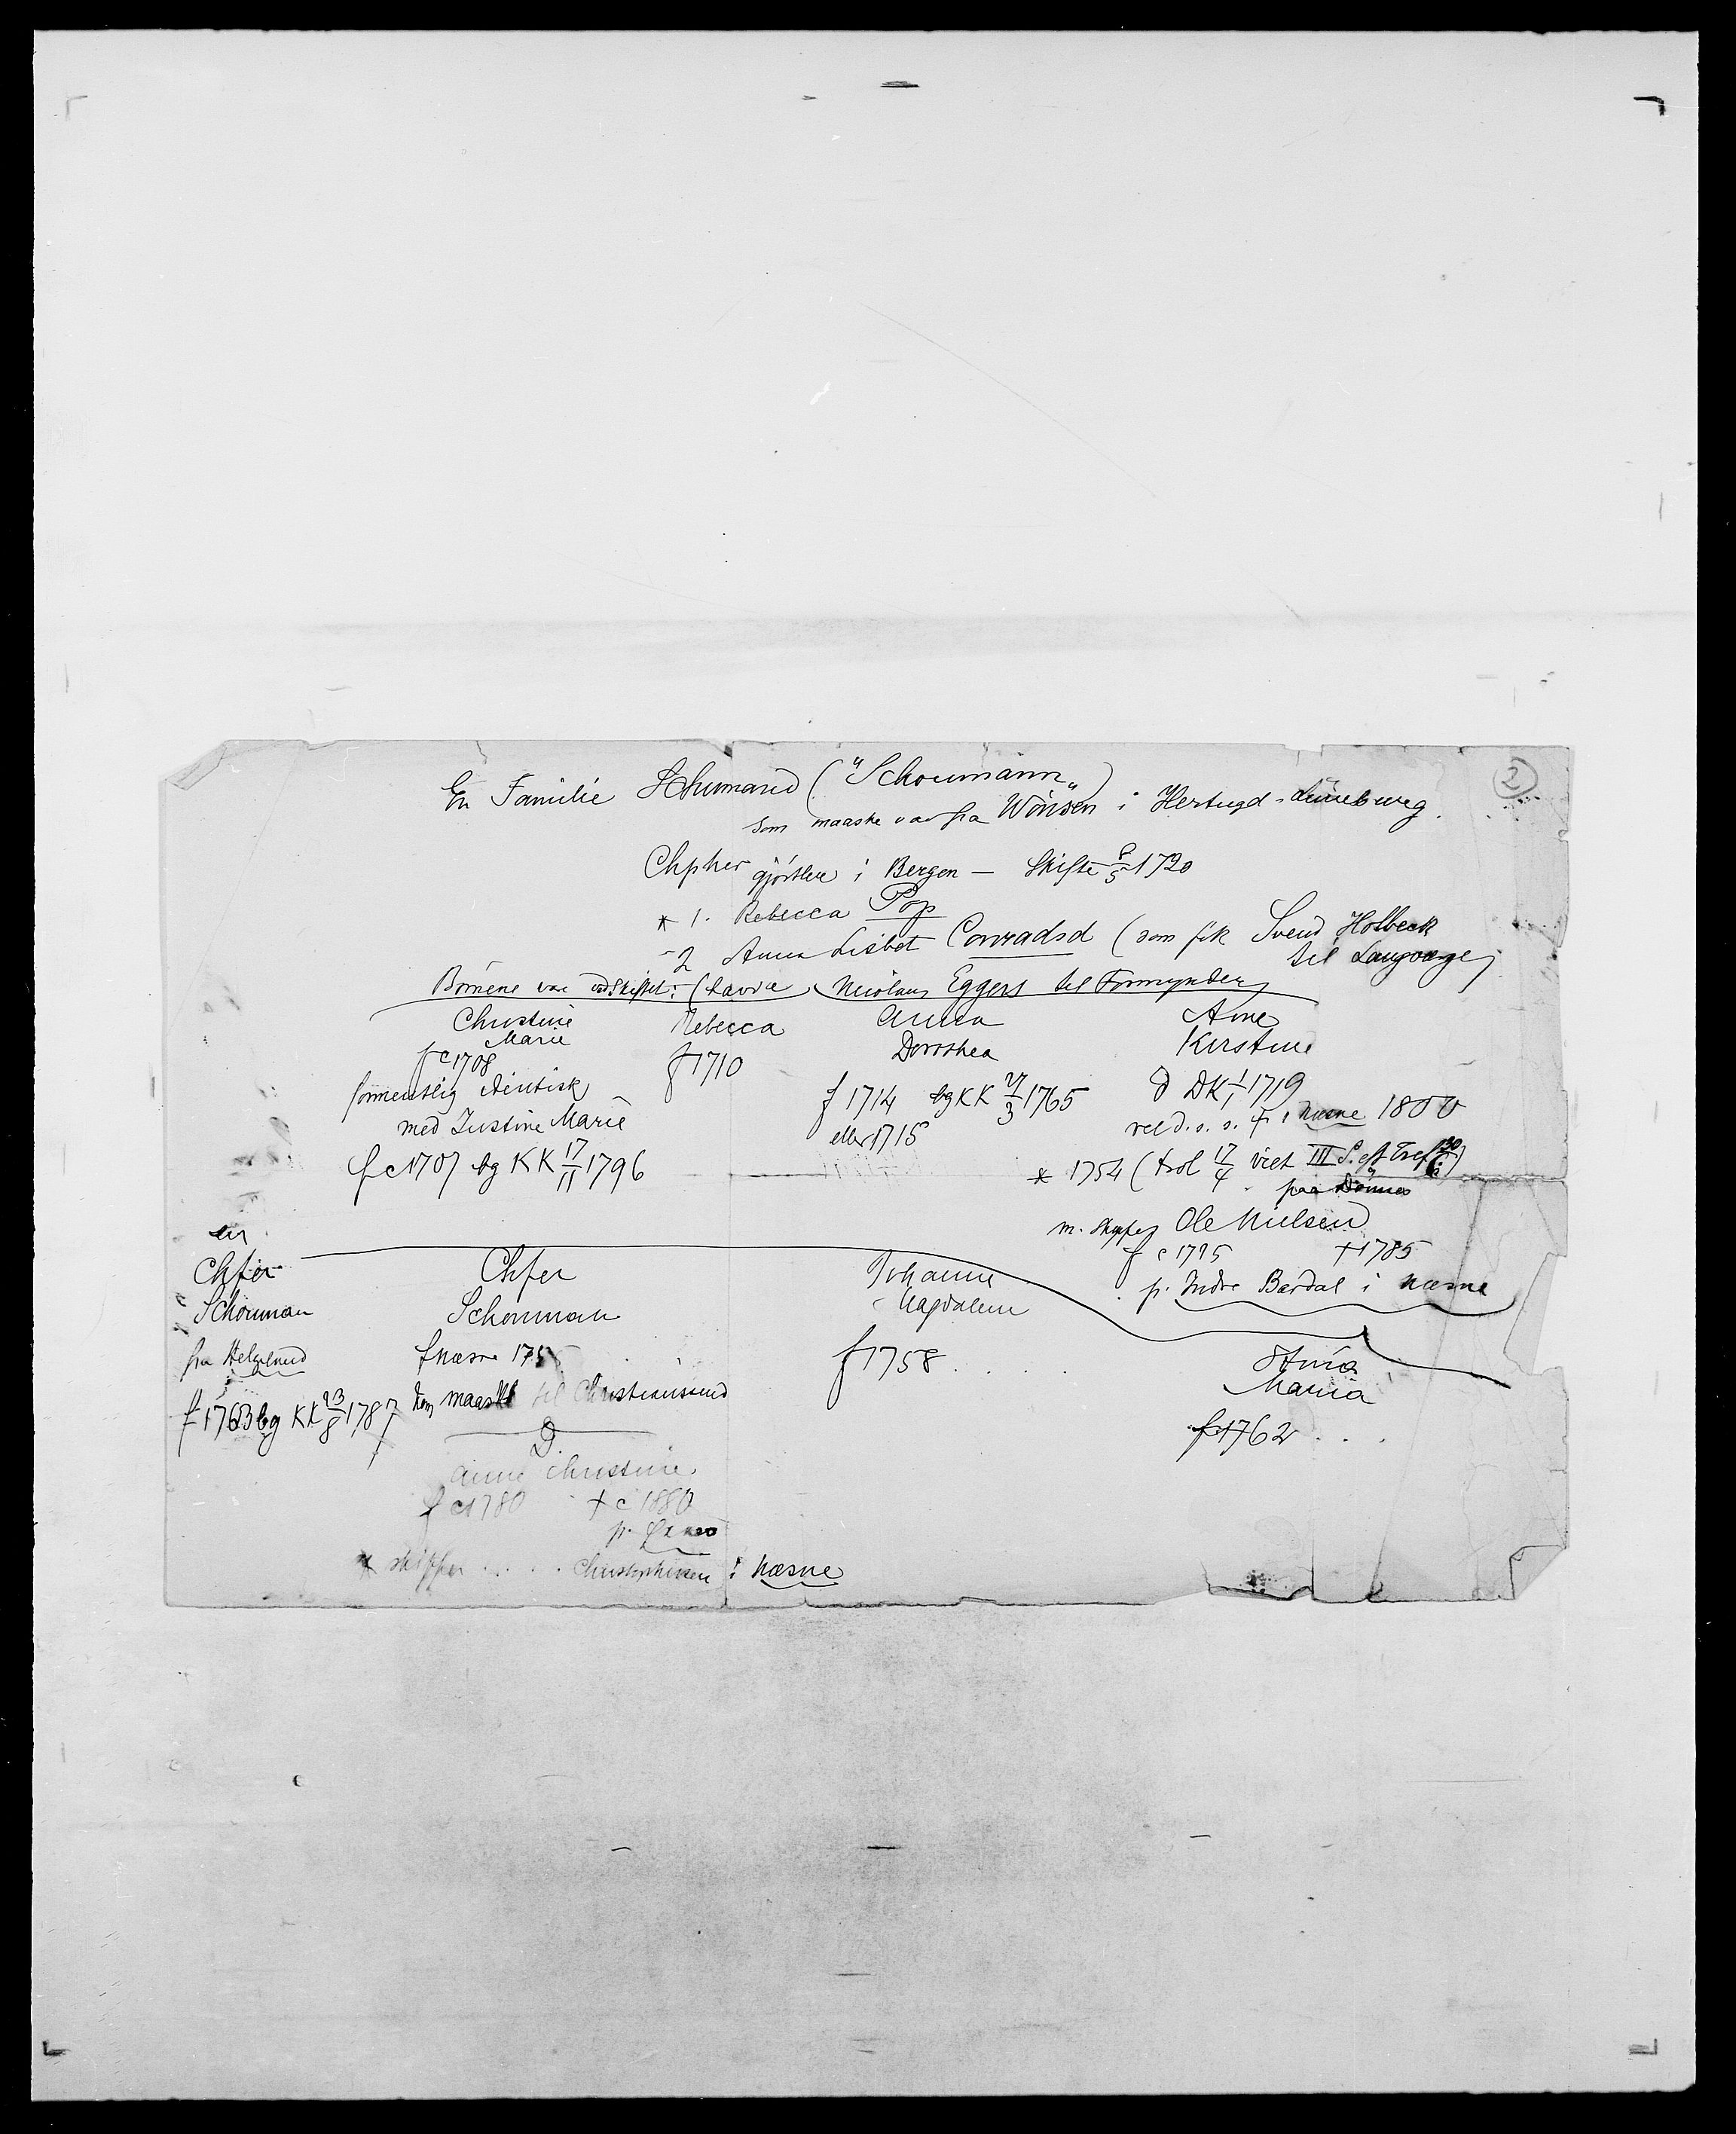 2
En Familie Schumand ("Schoumann„)
som maaske var fra Wönsen i Hertugd. Lüneburg.
Chpher gjörtler i Bergen — Skifte 8/5 1720
* 1. Rebecca Pop
- 2 Anna Lisbet Conradsd (som fik Svend Holbeck
til Laugværge)
Börnene var ved Skiftet: ( Nicolaus Eggers til Formynder
Christine Marie
f c 1708
formentlig identisk
med Justine Marie
f c 1707 bg KK 17/11 1796
Rebecca
f 1710
Anna
Dorothea
f 1714 bg KK 27/3 1765
eller 1715
Anne
Kirstine
d DK 1/1 1719
1800
* 1754 (trol 17/4 viet III S. ef Tref 30/6)
paa Dönnes
m. Skipper Ole Nielsen
f c 1725 † 1785
p. Indre Bardal i Næsne
en
Chfer
Schouman
fra Helgeland
f 1763 bg KK 23/8 1787
Chfer
Schouman
f Næsne 1755
kom maaske til Christianssund
D.
Anne Christine
f c 1780 † c 1880
p.
* skipper . . . . . Christophersen i Næsne
Johanne
Magdalene
f 1758 . . .
Anna
Maria
f 1762 . . .